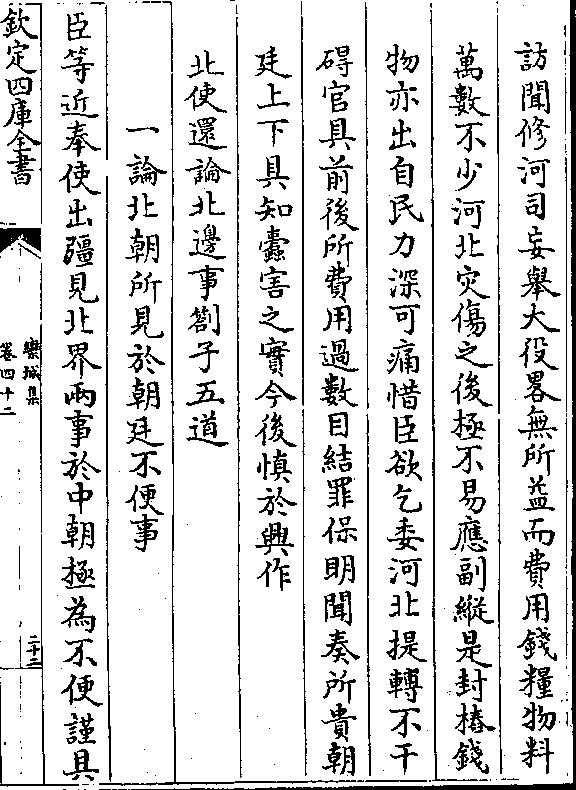 訪聞修河司妄舉大役畧無所益而費用錢糧物料
萬數不少河北灾傷之後極不易應副縱是封樁錢
物亦出自民力深可痛惜臣欲乞委河北提轉不干
碍官具前後所費用過數目結罪保明聞奏所貴朝
廷上下具知蠧害之實今後慎於興作
北使還論北邊事劄子五道
一論北朝所見於朝廷不便事
臣等近奉使出疆見北界兩事於中朝極為不便謹具
欽定四庫全書
欒城集
卷四十二
二十二